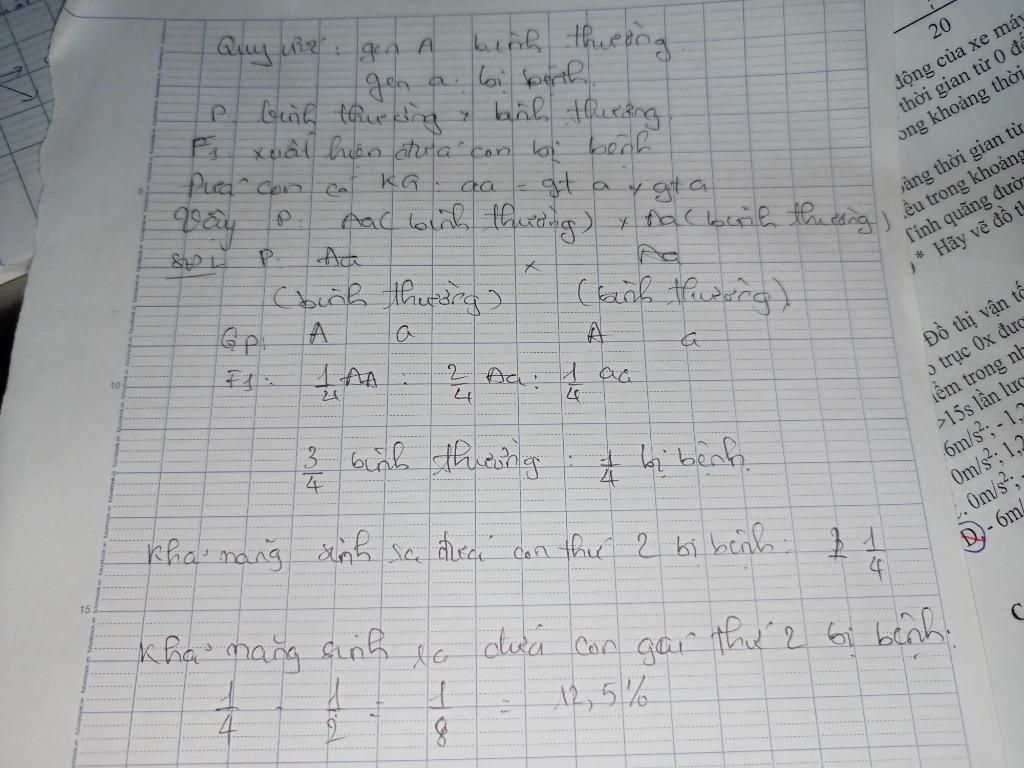 Quy ước: gen A bình thường.
gen a: bị bệnh.
P: bình thường x bình thường.
F1: xuất hiện đứa con bị bệnh
Đứa con có KG: aa = gt a x gt a
Vậy P: Aa (bình thường) x Aa (bình thường)
SĐL P: Aa x Aa
(bình thường) (bình thường)
Gp: A a A a
10
F1: 1/4 AA : 2/4 Aa : 1/4 aa
3/4 bình thường : 1/4 bị bệnh.
Khả năng sinh ra đứa con thứ 2 bị bệnh: 1/4
15
Khả năng sinh ra đứa con gái thứ 2 bị bệnh:
1/4 . 1/2 = 1/8 = 12,5%
20
động của xe máy
thời gian từ 0 đế
ong khoảng thời
thời gian từ
ều trong khoảng
Tính quãng đườn
* Hãy vẽ đồ th
Đồ thị vận tố
trục 0x đượ
iểm trong nh
>15s lần lượ
6m/s²; - 1,2
0m/s²; 1,2
0m/s²;
D. - 6m/
C